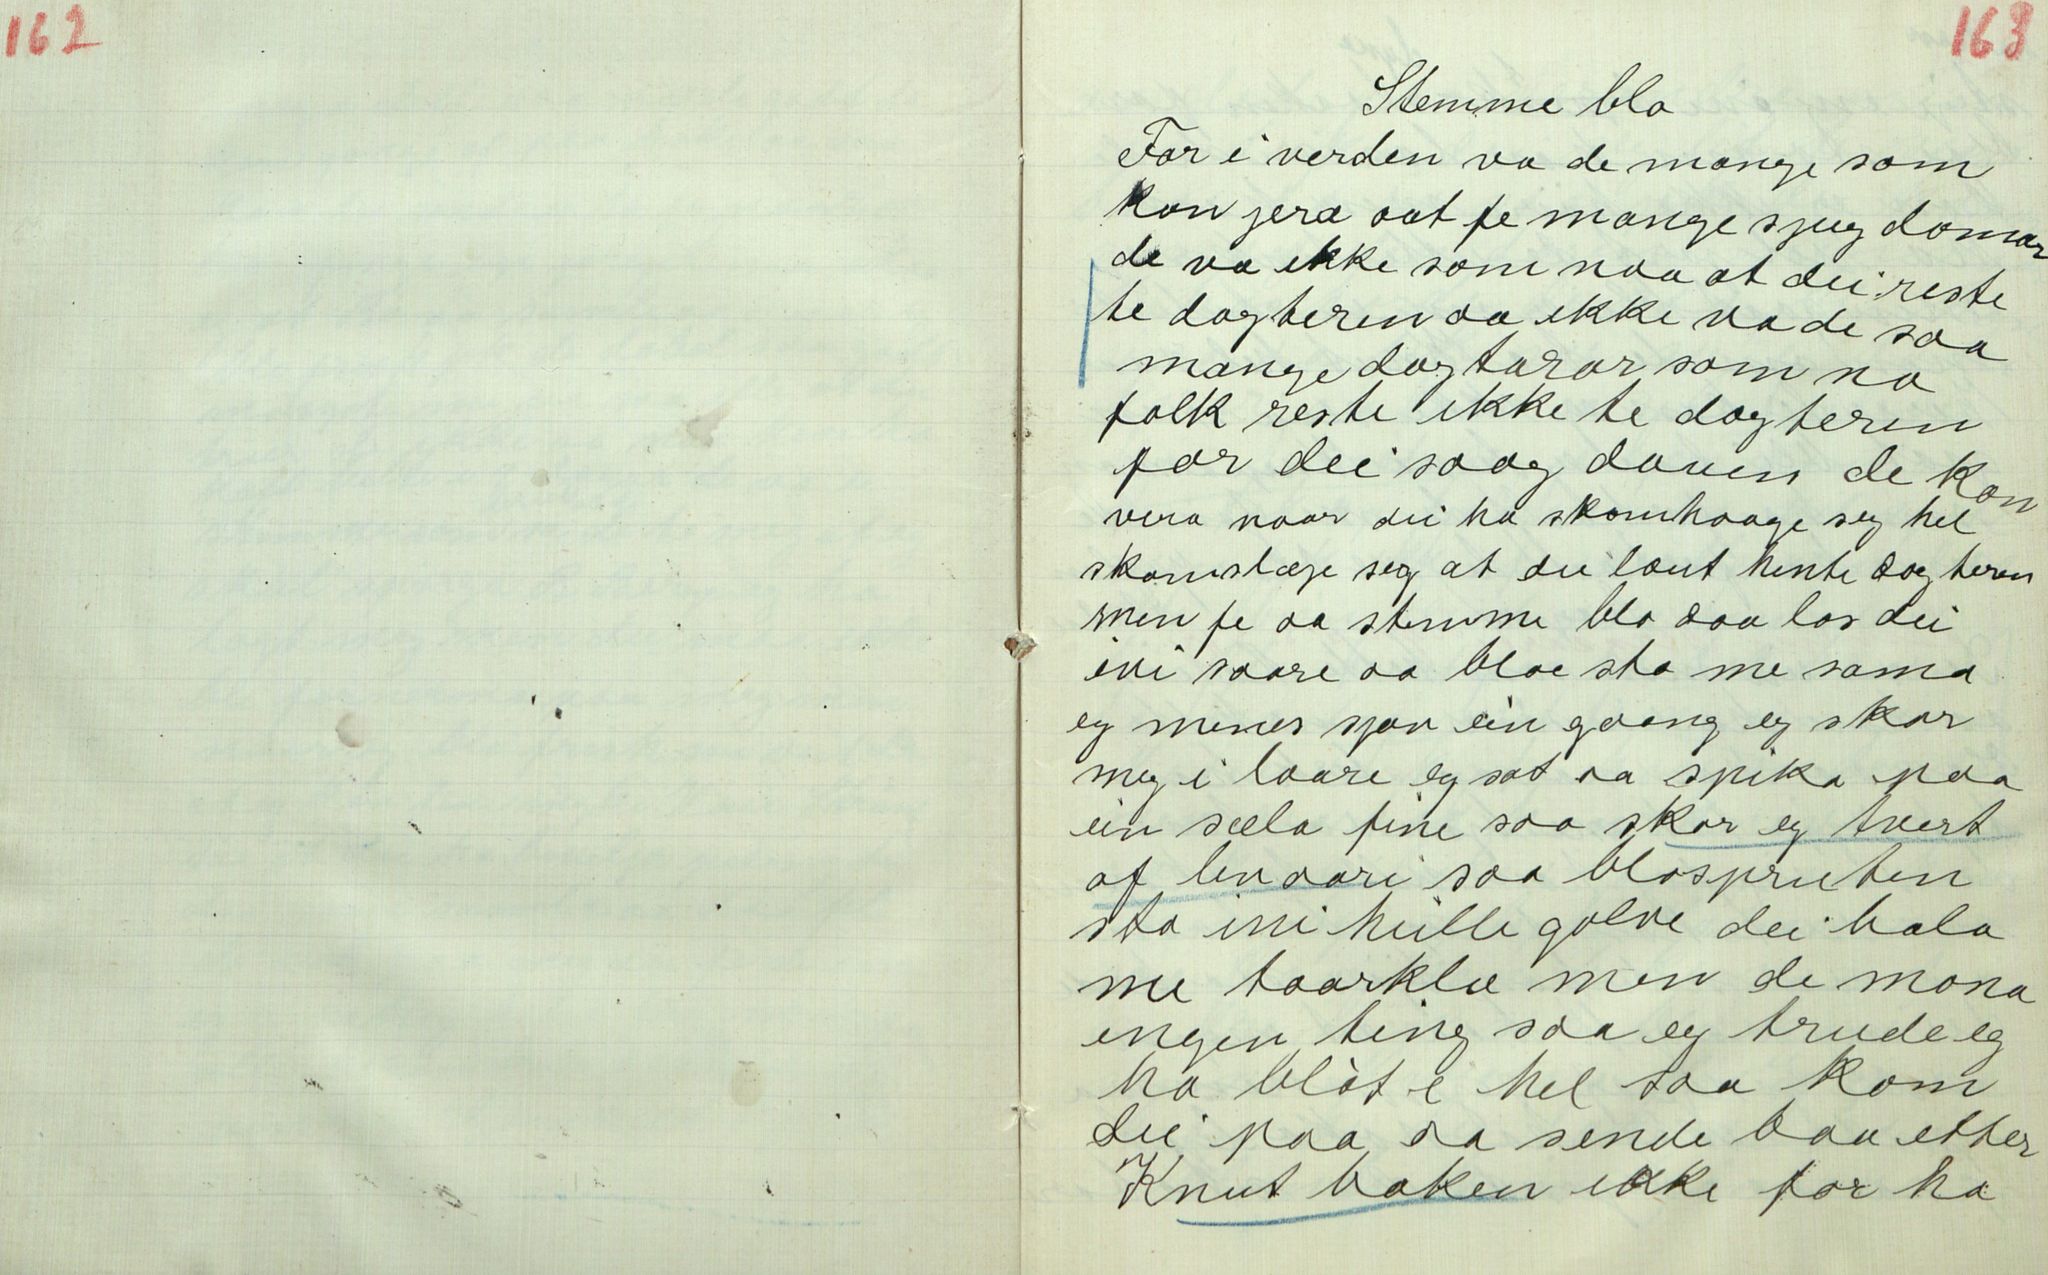 162
163
Stemme blo
For i verden va de mange som
kon jera aat fe mange sjugdomar
de va ikke som naa at dei reste
te dogteren aa ikke va de saa
mange dogtarar som na
folk reste ikke te dogteren
for dei saag dauen de kon
vera naar dei ha skamhaage seg hel
skamslæge seg at dei laut hente dogteren
men fe aa stemme blo daa las dei
ivi saare aa bloe sto me sama
eg menes sjøv ein gaang eg skar
meg i laare eg sat aa spika paa
ein sæla fine saa skar eg tvert
af livaari saa blospruten
sto ini heille golve dei hala
me taarklæ men de mona
ingen ting saa eg trude eg
ha blöt i hel saa kom
dei paa aa sende baa etter
Knut baken ikke for ha